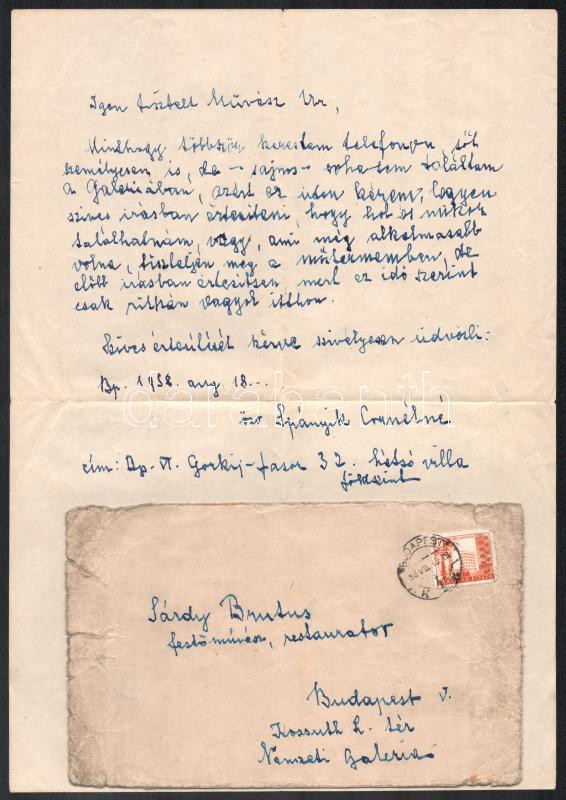 Igen tisztelt Művész Ur,
Minthogy többször kerestem telefonon, sőt
személyesen is, de – sajnos – soha sem találtam
a Galériában, azért ez uton kérem, legyen
szives irásban értesiteni, hogy hol és mikor
találhatnám, vagy, ami még alkalmasabb
volna, tiszteljen meg a műtermemben, de
előbb irásban értesitsen, mert ez idő szerint
csak ritkán vagyok itthon.
Szives értesitését kérve szivélyesen üdvözli:
Bp. 1958. aug. 18.-.
özv Spányik Cornélné
cím: Bp. VI. Gorkij-fasor 32. hátsó villa
földszint
darabanth
BUDAPEST
Sárdy Brutus
festőművész, restaurator
Budapest V.
Kossuth L. tér
Nemzeti Galeria